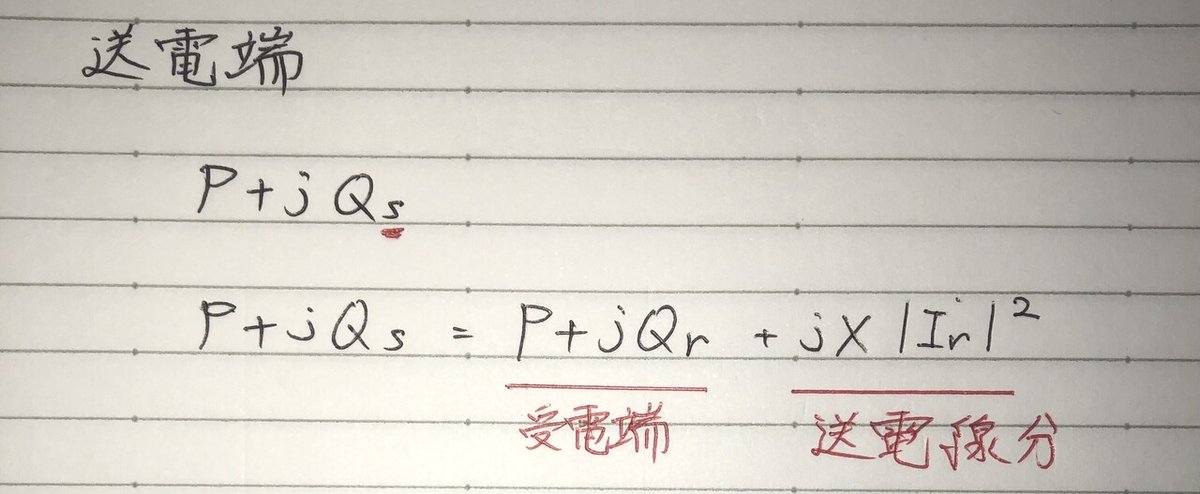 送電端
P+jQs
P+jQs = P+jQr + jX|İr|²
受電端 送電線分